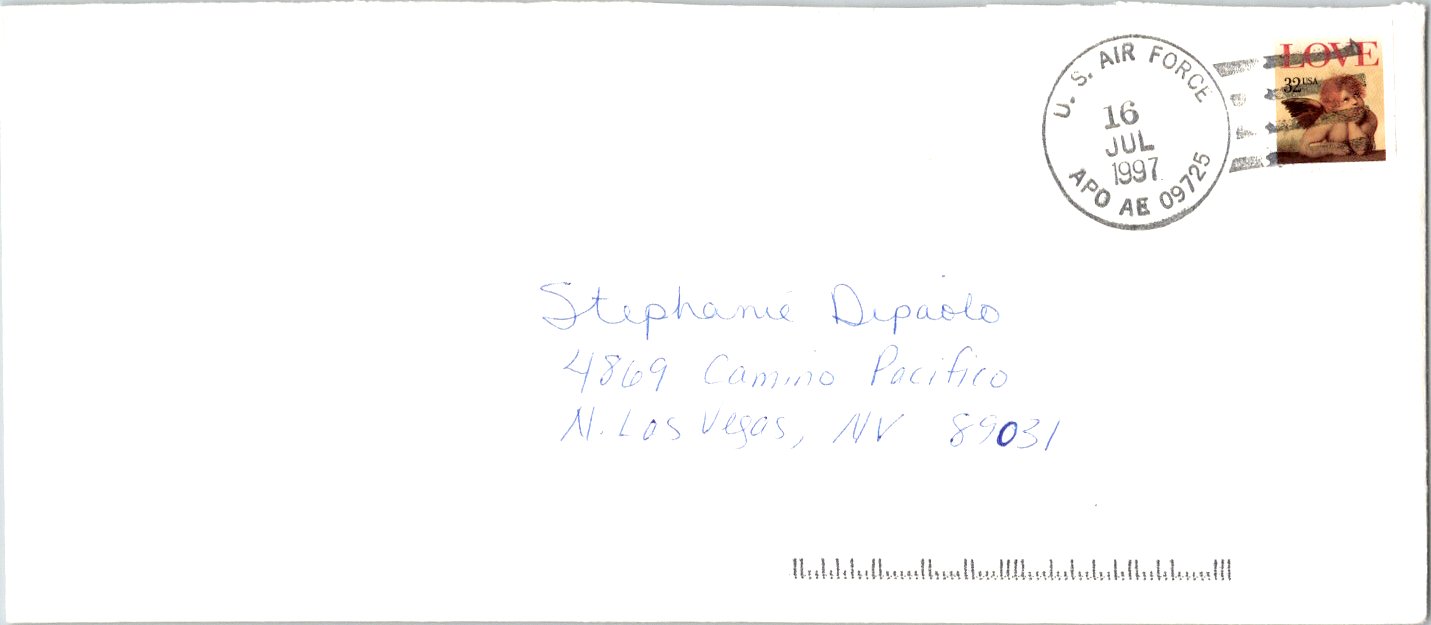 U. S. AIR FORCE
16
JUL
1997
APO AE 09725
LOVE
32 USA
Stephanie Dipaolo
4869 Camino Pacifico
N. Las Vegas, NV 89031